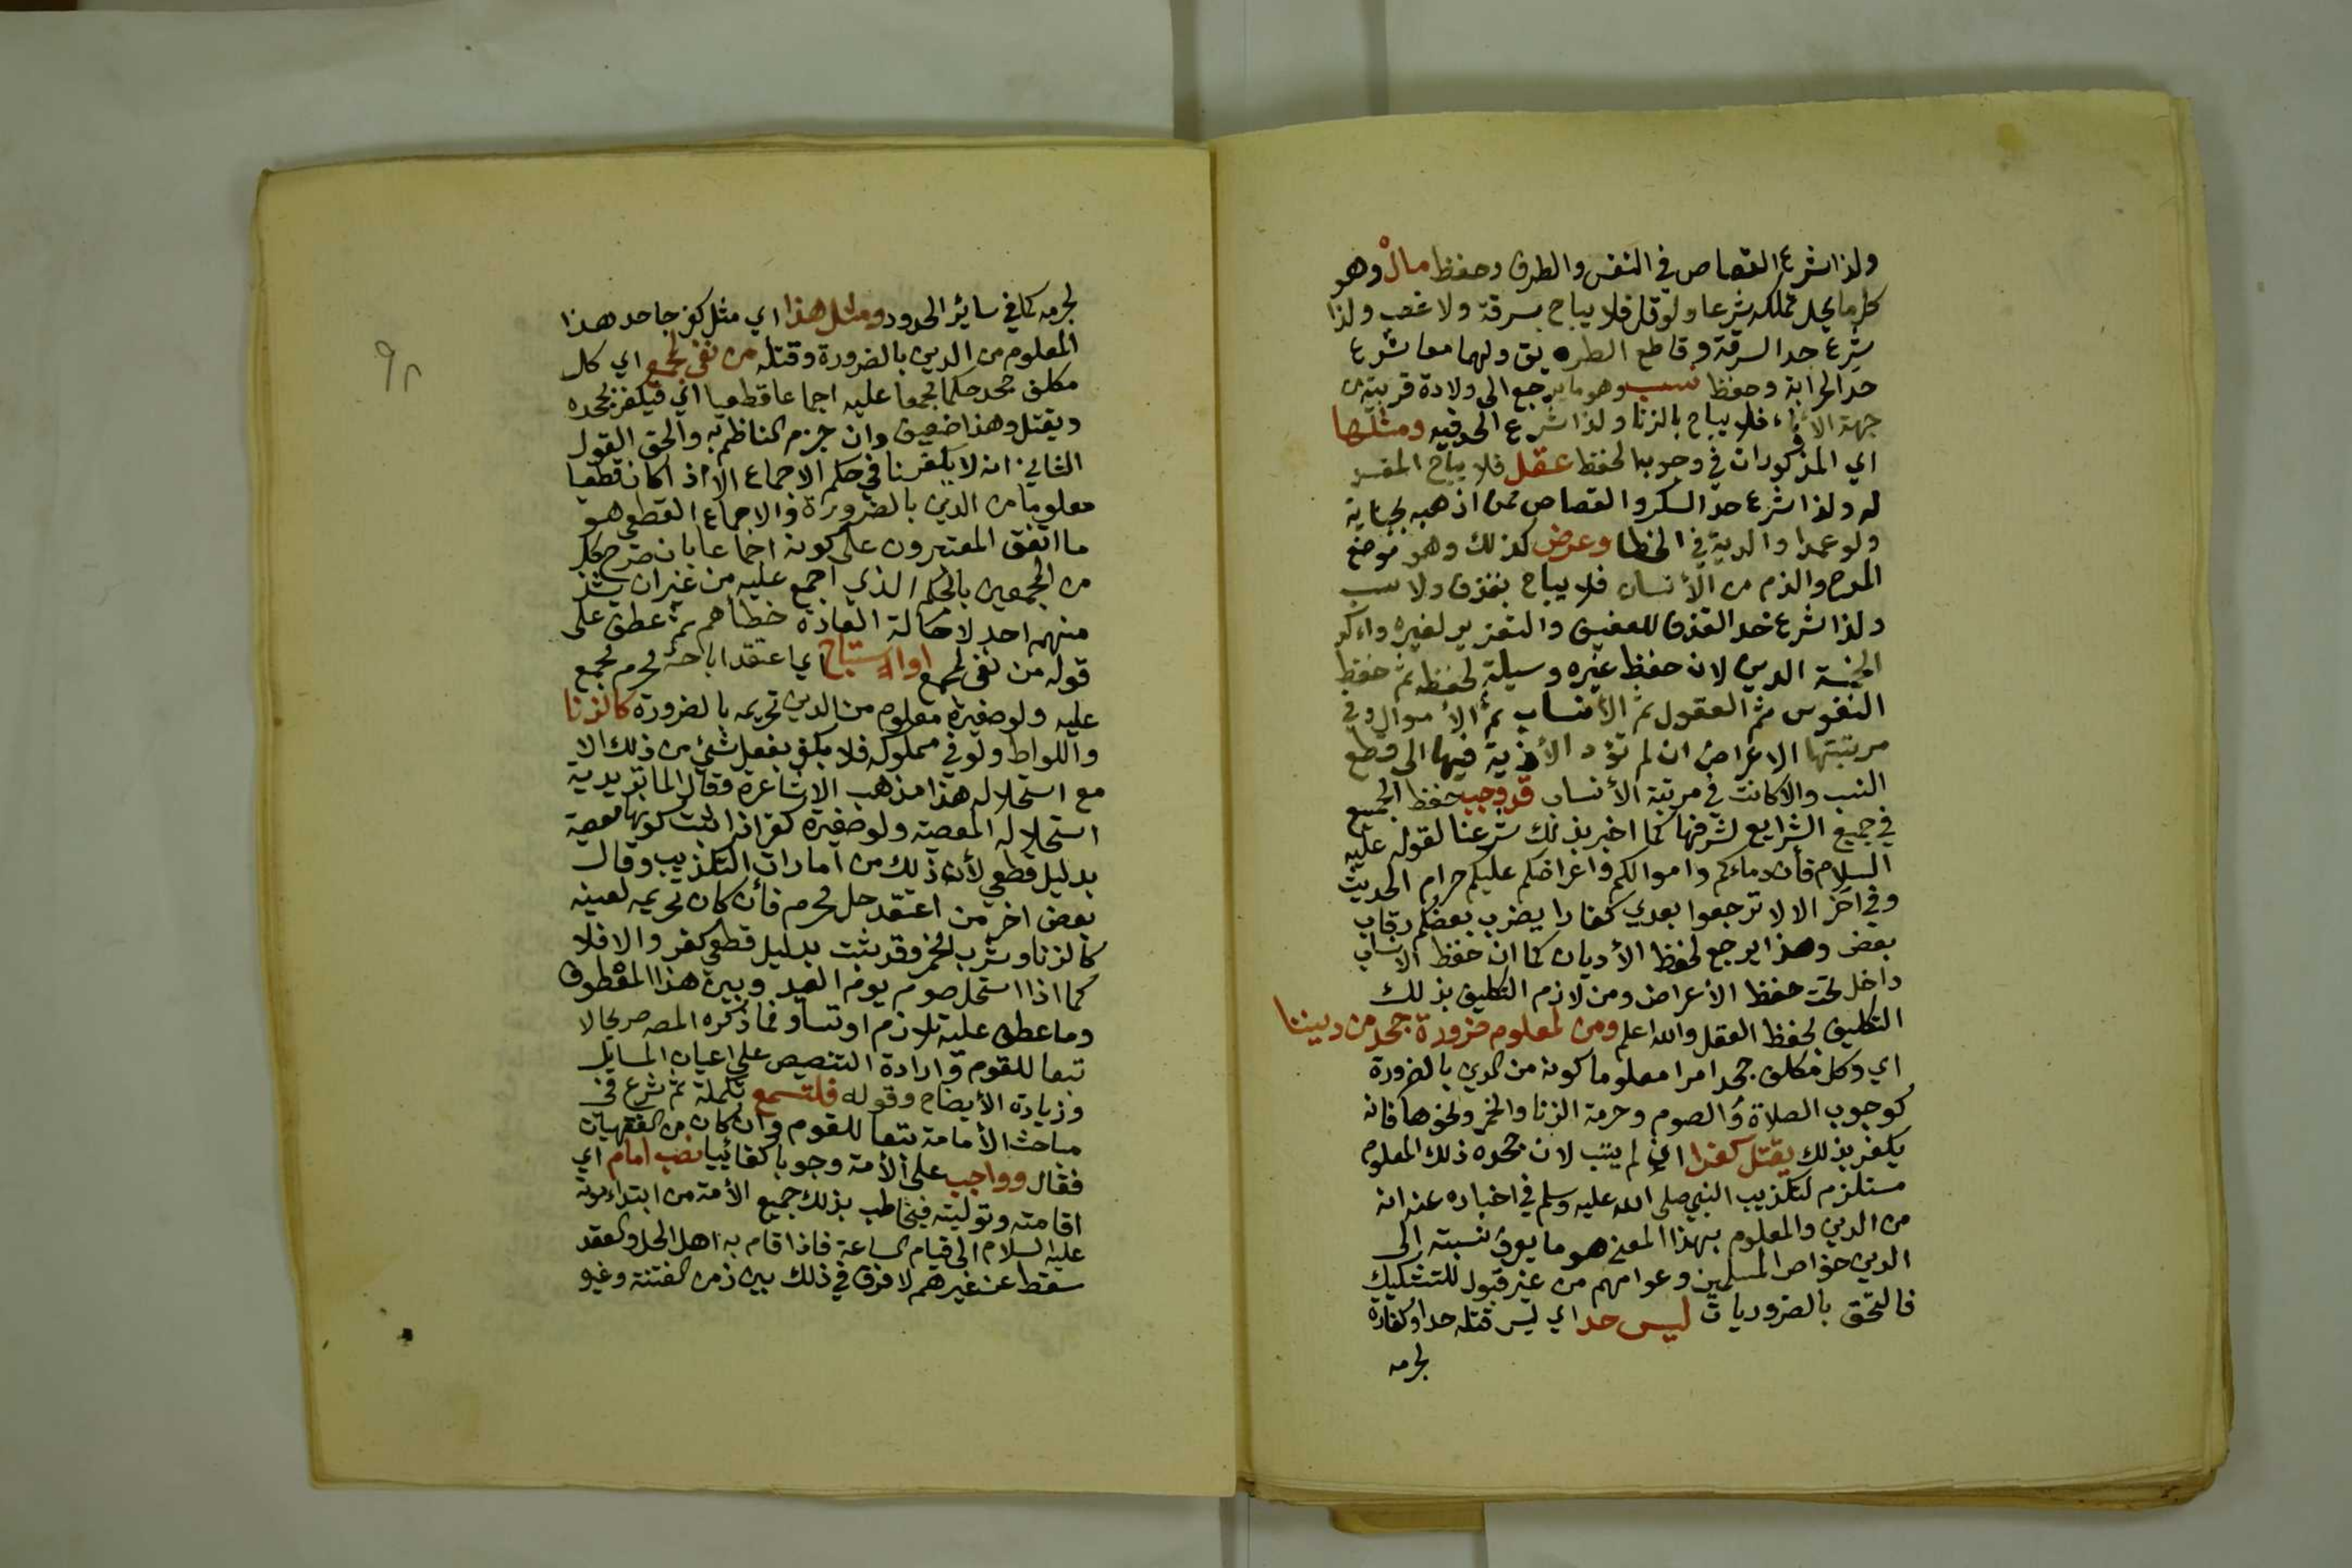 ولذا شرع القصاص في النفس والطرف وحفظ مال وهو
كل ما يحل تملكه شرعا ولو قل فلا يباح بسرقة ولا غصب ولذا
شرع حد السرقة وقاطع الطريق ولهما معا شرع
حد الحرابة وحفظ نسب وهو ما يرجع الى ولادة قريبة من
جهة الأباء فلا يباح بالزنا ولذا شرع الحد فيه ومثلها
اي المذكورات في وجوب الحفظ عقل فلا يباح المفسد
له ولذا شرع حد السكر والقصاص ممن اذهبه بجناية
ولو عمدا والدية في الخطا وعرض كذلك وهو موضع
المدح والذم من الأنسان فلا يباح بقذف ولا سب
ولذا شرع حد القذف للعفيف والتعزير لغيره واكد
الخمسة الدين لان حفظ غيره وسيلة لحفظه ثم حفظ
النفوس ثم العقول ثم الأنساب ثم الأموال وفي
مرتبتها الاعراض ان لم تؤد الأذية فيها الى قطع
النسب والا كانت في مرتبة الأنساب قد وجب حفظ الجميع
في جميع الشرايع لشرفها كما اخبر بذلك شرعنا لقوله عليه
السلام فأن دماءكم واموالكم واعراضكم عليكم حرام الحديث
وفي آخر الا لا ترجعوا بعدي كفارا يضرب بعضكم رقاب
بعض وهذا يرجع لحفظ الأديان كما ان حفظ الانساب
داخل تحت حفظ الأعراض ومن لازم التكليف بذلك
التكليف لحفظ العقل والله اعلم ومن لمعلوم ضرورة جحد من ديننا
اي وكل مكلف جحد امرا معلوما كونه من الدين بالضرورة
كوجوب الصلاة والصوم وحرمة الزنا والخمر ونحوها فانه
يكفر بذلك يقتل كفرا اي ان لم يتب لان جحده ذلك المعلوم
مستلزم لتكذيب النبي صلى الله عليه وسلم في اخباره عنه انه
من الدين والمعلوم بهذا المعنى هو ما يعرف نسبته الى
الدين خواص المسلمين وعوامهم من غير قبول للتشكيك
فالتحق بالضروريات ليس حد اي ليس قتله حدا وكفارة
لجرمه
٩٢
لجرمه كما في ساير الحدود ومثل هذا اي مثل كفر جاحد هذا
المعلوم من الدين بالضرورة وقتله من نفى لمجمع اي كل
مكلف جحد حكما مجمعا عليه اجماعا قطعيا اي فيكفر بجحده
ويقتل وهذا ضعيف وان جزم الناظم به والحق القول
الثاني انه لا يكفر نافي حكم الاجماع الا اذا كان قطعيا
معلوما من الدين بالضرورة والاجماع القطعي هو
ما اتفق المعتبرون على كونه اجماعا بان صرح كل
من المجمعين بالحكم الذي اجمع عليه من غير ان يشذ
منهم احد لاحالة العادة خطأهم ثم عطف على
قوله من نفى لمجمع او استباح اي اعتقد اباحة محرم مجمع
عليه ولو صغيرة معلوم من الدين تحريمه بالضرورة كالزنا
واللواط ولو في مملوكه فلا يكفر بفعل شئ من ذلك الا
مع استحلاله هذا مذهب الاشاعرة وقال الماتريدية
استحلاله المعصية ولو صغيرة كفر اذا ثبت كونها معصية
بدليل قطعي لأن ذلك من امارات التكذيب وقال
بعض اخر من اعتقد حل محرم فأن كان تحريمه لعينه
كالزنا وشرب الخمر وقد ثبت بدليل قطعي كفر والا فلا
كما اذا استحل صوم يوم العيد وبين هذا المعطوف
وما عطف عليه تلازم او تساو فما ذكره المصه صريحا الا
تبعا للقوم وارادة التنصيص على اعيان المسايل
وزيادة الأيضاح وقوله فلتسمع تكملة ثم شرع في
مباحث الأمامة تبعا للقوم وان كان من الفقهيات
فقال وواجب على الأمة وجوبا كفائيا نصب امام اي
اقامته وتوليته فيخاطب بذلك جميع الأمة من ابتداء موته
عليه السلام الى قيام الساعة فاذا قام به اهل الحل والعقد
سقط عن غيرهم لا فرق في ذلك بين زمن الفتنة وغيره